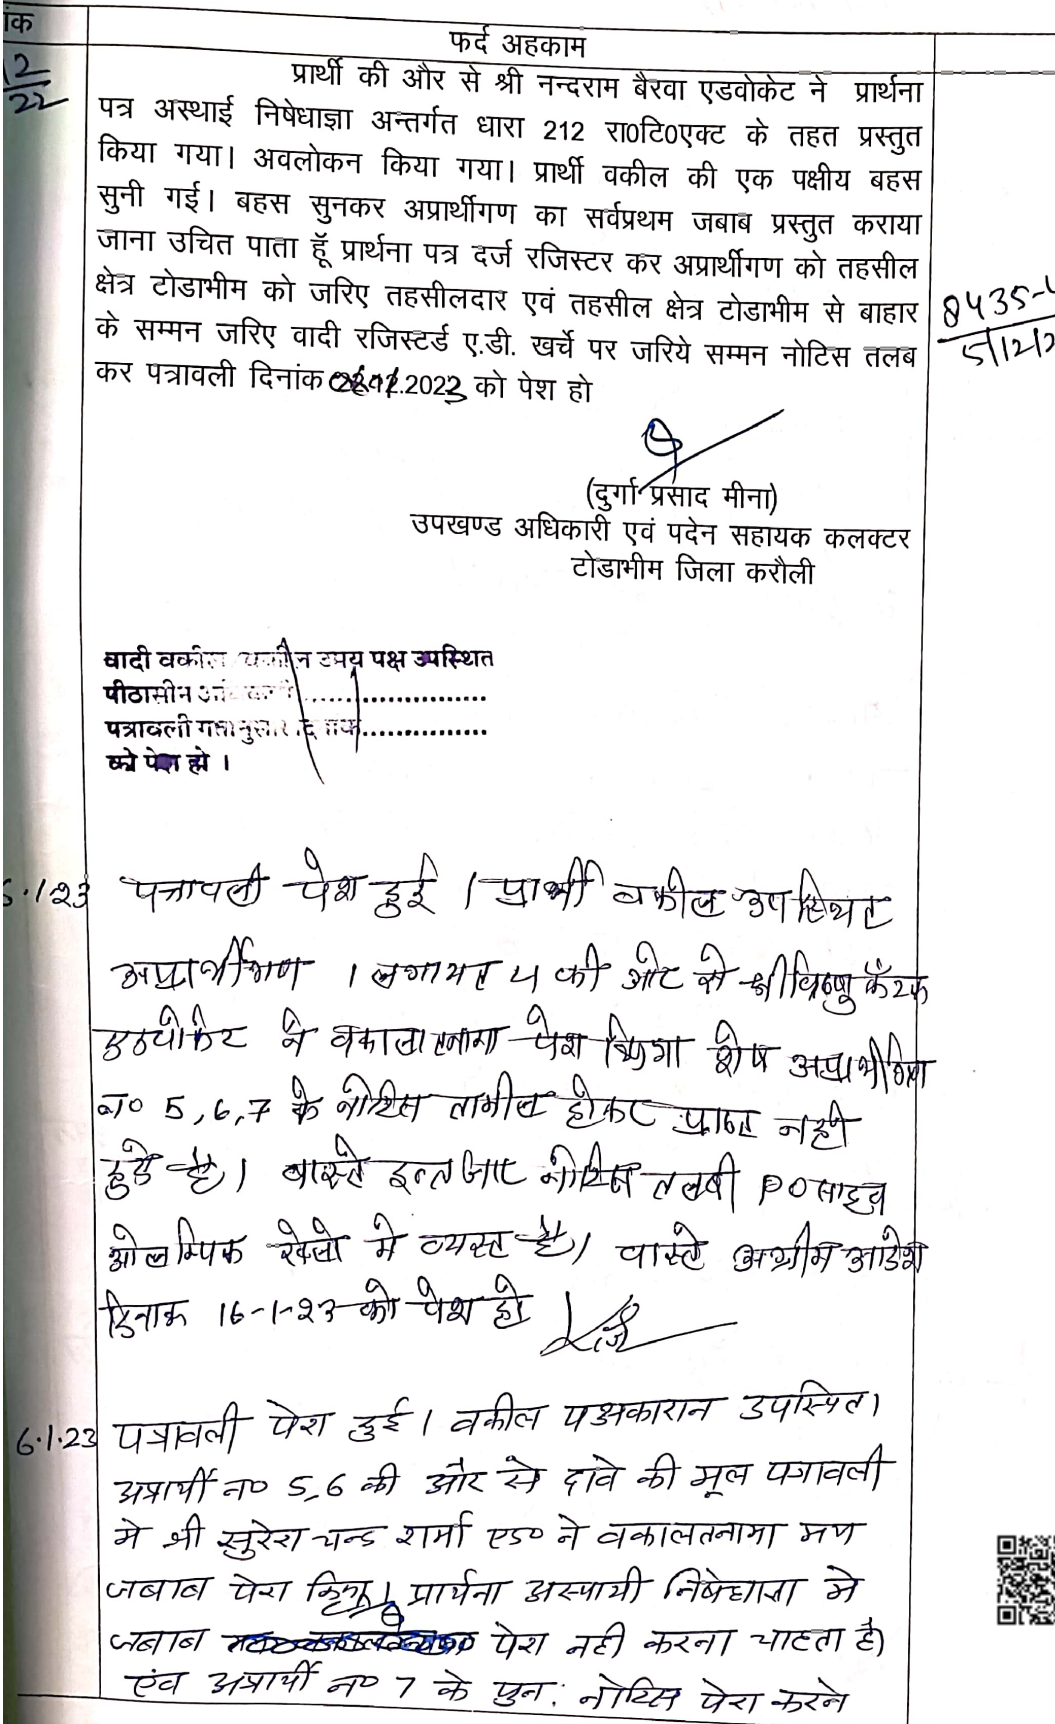 ांक
फर्द अहकाम
12
22
प्रार्थी की और से श्री नन्दराम बैरवा एडवोकेट ने प्रार्थना
पत्र अस्थाई निषेधाज्ञा अन्तर्गत धारा 212 रा0टि0एक्ट के तहत प्रस्तुत
किया गया। अवलोकन किया गया। प्रार्थी वकील की एक पक्षीय बहस
सुनी गई। बहस सुनकर अप्रार्थीगण का सर्वप्रथम जबाब प्रस्तुत कराया
जाना उचित पाता हूँ प्रार्थना पत्र दर्ज रजिस्टर कर अप्रार्थीगण को तहसील
क्षेत्र टोडाभीम को जरिए तहसीलदार एवं तहसील क्षेत्र टोडाभीम से बाहार
के सम्मन जरिए वादी रजिस्टर्ड ए.डी. खर्चे पर जरिये सम्मन नोटिस तलब
कर पत्रावली दिनांक .2023 को पेश हो
8435-
5/12/2
(दुर्गा प्रसाद मीना)
उपखण्ड अधिकारी एवं पदेन सहायक कलक्टर
टोडाभीम जिला करौली
वादी वकील उभय पक्ष उपस्थित
पीठासीन ....................
पत्रावली गतानुसार ................
को पेश हो ।
5.1.23 पत्रावली पेश हुई । प्रार्थी वकील उपस्थित
अप्रार्थीगण 1 लगायत 4 की ओर से श्री विष्णु
एडवोकेट ने वकालतनामा पेश किया शेष अप्रार्थीगण
न० 5,6,7 के नोटिस तामील होकर प्राप्त नही
हुये है। वास्ते इन्तजार नोटिस तलबी PO साहब
ओलम्पिक खेलो मे व्यस्त है। वास्ते अग्रीम आदेश
दिनाक 16-1-23 को पेश हो
6.1.23 पत्रावली पेश हुई। वकील पक्षकारान उपस्थित।
अप्रार्थी न० 5,6 की और से दावे की मूल पत्रावली
मे श्री सुरेश चन्ड शर्मा एड० ने वकालतनामा मय
जबाब पेश किया। प्रार्थना अस्थायी निषेधाज्ञा मे
जबाब पेश नही करना चाहता है।
एंव अप्रार्थी न० 7 के पुन: नोटिस पेश करने